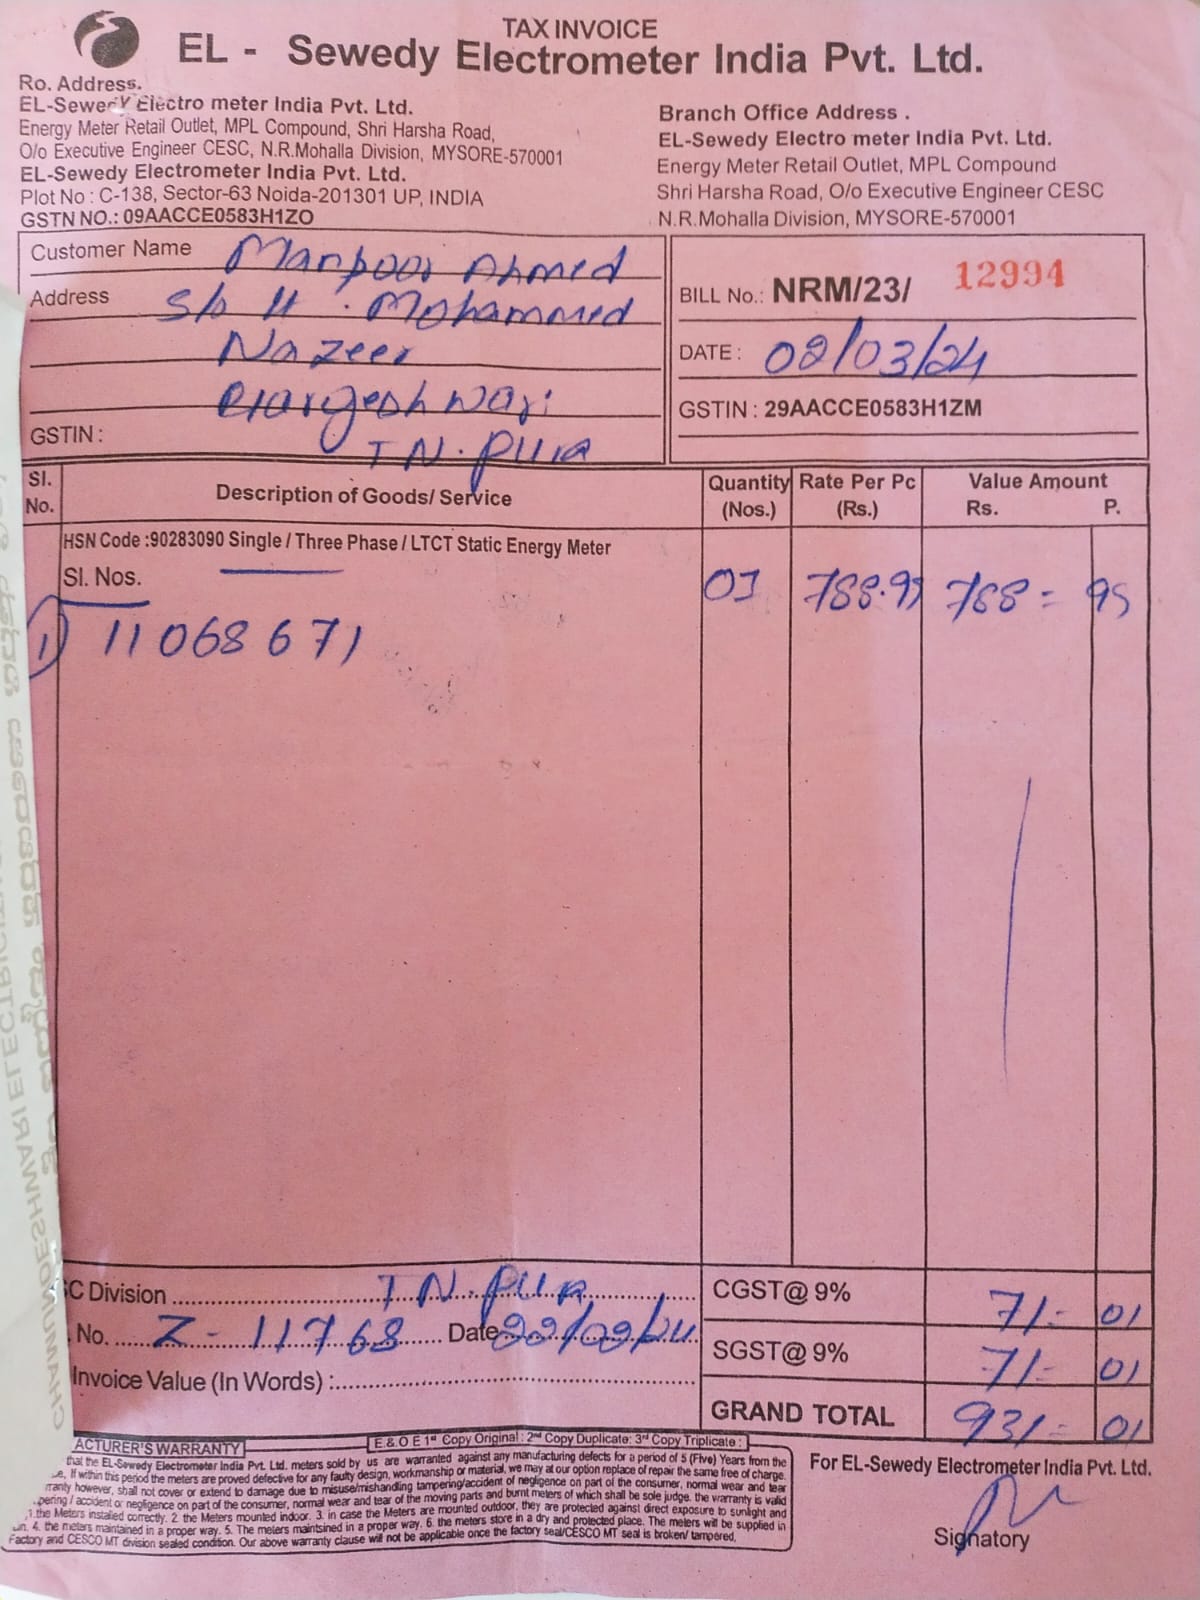 TAX INVOICE
EL - Sewedy Electrometer India Pvt. Ltd.
Ro. Address.
EL-Sewedy Electro meter India Pvt. Ltd.
Energy Meter Retail Outlet, MPL Compound, Shri Harsha Road,
O/o Executive Engineer CESC, N.R.Mohalla Division, MYSORE-570001
EL-Sewedy Electrometer India Pvt. Ltd.
Plot No : C-138, Sector-63 Noida-201301 UP, INDIA
GSTN NO.: 09AACCE0583H1ZO
Branch Office Address .
EL-Sewedy Electro meter India Pvt. Ltd.
Energy Meter Retail Outlet, MPL Compound
Shri Harsha Road, O/o Executive Engineer CESC
N.R.Mohalla Division, MYSORE-570001
Customer Name Manpoor Ahmed
Address S/o H . Mohammed
Nazeer
GSTIN :
T N . pura
BILL No.: NRM/23/ 12994
DATE : 02/03/24
GSTIN : 29AACCE0583H1ZM
Sl. No. Description of Goods/ Service Quantity (Nos.) Rate Per Pc (Rs.) Value Amount Rs. P.
HSN Code :90283090 Single / Three Phase / LTCT Static Energy Meter
Sl. Nos. 01 788.95 788 = 95
1) 11068671
C Division T N . PURA
. No. Z - 11768 Date
Invoice Value (In Words) :
CGST@ 9% 71 - 01
SGST@ 9% 71 - 01
GRAND TOTAL 931 - 01
E.& O E 1st Copy Original : 2nd Copy Duplicate: 3rd Copy Triplicate :
ACTURER'S WARRANTY
that the EL-Sewedy Electrometer India Pvt. Ltd. meters sold by us are warranted against any manufacturing defects for a period of 5 (Five) Years from the
If within this period the meters are proved defective for any faulty design, workmanship or material, we may at our option replace of repair the same free of charge.
however, shall not cover or extend to damage due to misuse/mishandling tampering/accident of negligence on part of the consumer, normal wear and tear
/ accident or negligence on part of the consumer, normal wear and tear of the moving parts and burnt meters of which shall be sole judge. the warranty is valid
1.the Meters installed correctly. 2. the Meters mounted indoor. 3. in case the Meters are mounted outdoor, they are protected against direct exposure to sunlight and
4. the meters maintained in a proper way. 5. The meters maintsined in a proper way. 6. the meters store in a dry and protected place. The meters will be supplied in
Factory and CESCO MT division sealed condition. Our above warranty clause will not be applicable once the factory seal/CESCO MT seal is broken/ tampered.
For EL-Sewedy Electrometer India Pvt. Ltd.
Signatory